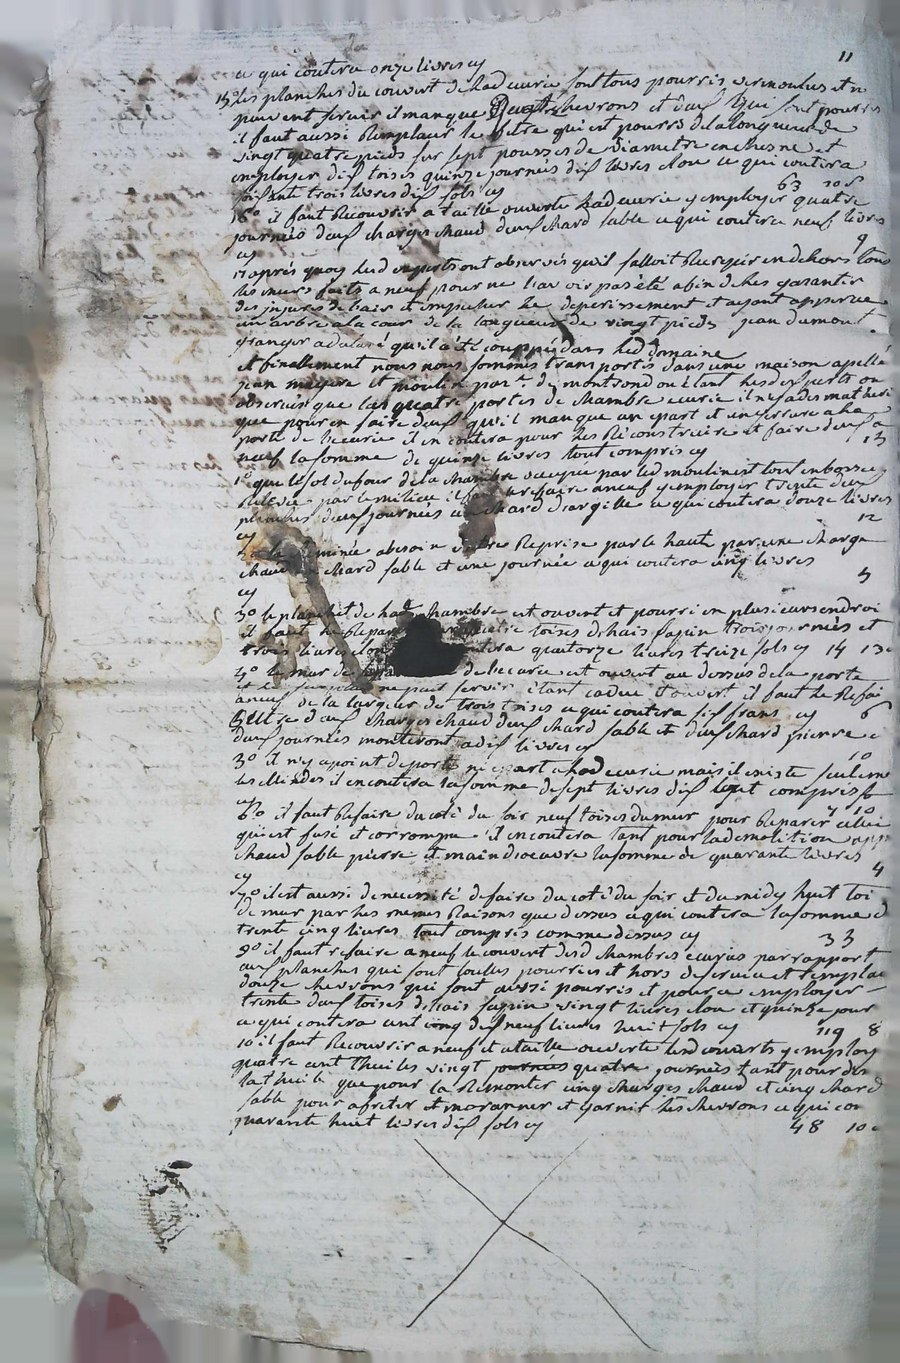 11
ce qui coutera onze livres cy
15º les planches du couvert de lad ecurie sont tous pourris vermoulus et n
peuvent servir il manque quatre chevrons et deux qui sont pourris
il faut aussi remplacer le fetre qui est pourri de la longueur de
vingt quatre pieds sur sept pousses de diametre en chesne et
employer dix toises quinze journées dix livres clou ce qui coutera
soixante trois livres dix sols cy 63 10 s
16º il faut Recouvrir a taille ouverte lad ecurie y employer quatre
journées deux charges chaud deux chard sable ce qui coutera neuf livres
cy 9
17 aprés quoy lesd experts ont observés qu'il falloit Recrepir en dehors tous
les murs faits a neuf pour ne l'avoir pas été afin de les garantir
des injures de l'air et empecher le deperissement et ayant apperçue
un arbre a la cour de la longueur de vingt pieds jean dumont
granger a declaré qu'il a été couppé dans led domaine
et finallement nous nous sommes transportés dans une maison apellé
jean mayere et moulin par.e de montrond ou étant lesd experts on
observés que les quatre portes de chambre ecurie il n'y a des materi
que pour en faire deux qu'il manque un epart et un serrure a la
porte de l'ecurie il en coutera pour les Reconstruire et faire deux a
neuf la somme de quinze livres tout compris cy 15
1º que le sol du four de la chambre occupée par led moulin est tout
par le milieu il faut refaire a neuf y employer trente deux
deux journées un chard d'argille ce qui coutera douze livres
cy 12
2º la cheminée a besoin d'etre Reprise par le haut par une charge
chaud chard sable et une journée ce qui coutera cinq livres
cy 5
3º le planchet de lad chambre est ouvert et pourri en plusieurs endroi
il faut le Reparer quatre toises d'hais sapin trois journées et
trois livres clou coutera quatorze livres treize sols cy 14 13
4º le mur de de l'ecurie est ouvert au dessus de la porte
et ne peut servir étant caduc et ouvert il faut le Refai
a neuf de la largeur de trois toises ce qui coutera six frans cy 6
deux charges chaud deux chard sable et deux chard pierre e
deux journées monteront a dix livres cy 10
3º il n'y a point de porte ni epart a lad ecurie mais il existe seuleme
il en coutera la somme de sept livres dix tout compris
cy 7 10
6º il faut Refaire du coté du soir neuf toises du mur pour Reparer celui
qui est fusé et corrompu il en coutera tant pour la demolition
chaud sable pierre et main d'oeuvre la somme de quarante livres
cy 4
7º il est aussi de necessité de faire du coté du soir et du midy huit toi
de mur par les memes Raisons que dessus ce qui coutera la somme d
trente cinq livres tout compris comme dessus cy 33
9º il faut refaire a neuf le couvert desd chambres ecuries par rapport
aux planches qui sont toutes pourries et hors de service et remplac
douze chevrons qui sont aussi pourris et pour ce employer
trente deux toises d'hais sapin vingt livres clou et quinze jour
ce qui coutera cent cinq dix neuf livres huit sols cy 119 8
10 il faut Recouvrir a neuf et a taille ouverte lesd couverts y employ
quatre cent thuiles vingt quatre journées tant pour des
la thuile que pour la Remonter cinq charges chaud et cinq chard
sable pour et et garnir les chevrons ce qui cou
quarante huit livres dix sols cy 48 10